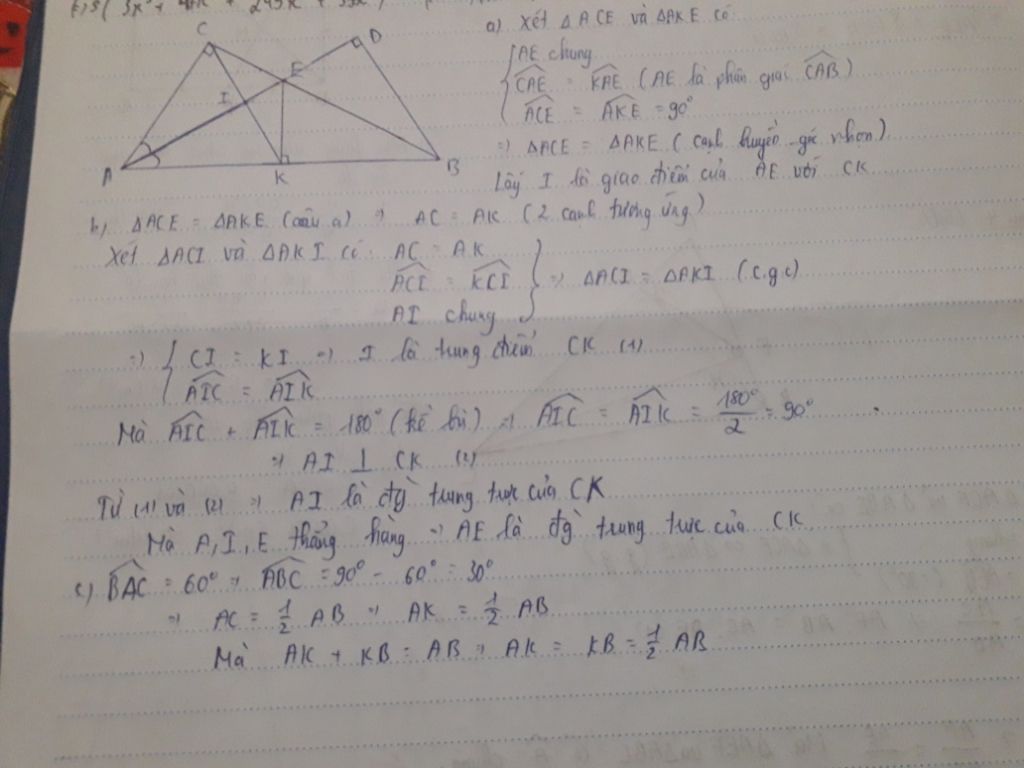 C
D
E
I
A
K
B
a) Xét ΔACE và ΔAKE có:
AE chung
CAE = KAE (AE là phân giác CAB)
ACE = AKE = 90°
=> ΔACE = ΔAKE (cạnh huyền - góc nhọn)
Lấy I là giao điểm của AE với CK
b) ΔACE = ΔAKE (câu a) => AC = AK (2 cạnh tương ứng)
Xét ΔACI và ΔAKI có: AC = AK
ACI = KCI => ΔACI = ΔAKI (c.g.c)
AI chung
=> CI = KI => I là trung điểm CK (1)
AIC = AIK
Mà AIC + AIK = 180° (kề bù) => AIC = AIK = 180°/2 = 90°
=> AI ⊥ CK (2)
Từ (1) và (2) => AI là đg trung trực của CK
Mà A, I, E thẳng hàng => AE là đg trung trực của CK
c) BAC = 60° => ABC = 90° - 60° = 30°
=> AC = 1/2 AB => AK = 1/2 AB
Mà AK + KB = AB => AK = KB = 1/2 AB